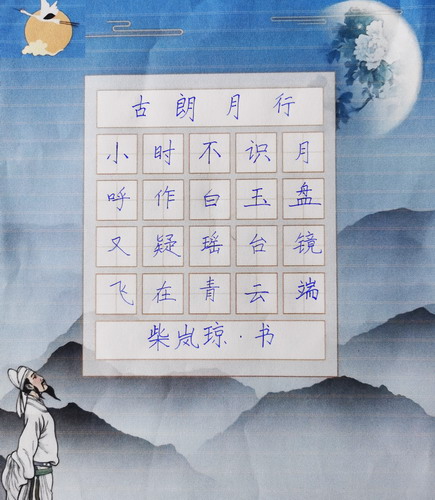 古朗月行
小时不识月
呼作白玉盘
又疑瑶台镜
飞在青云端
柴岚琼·书